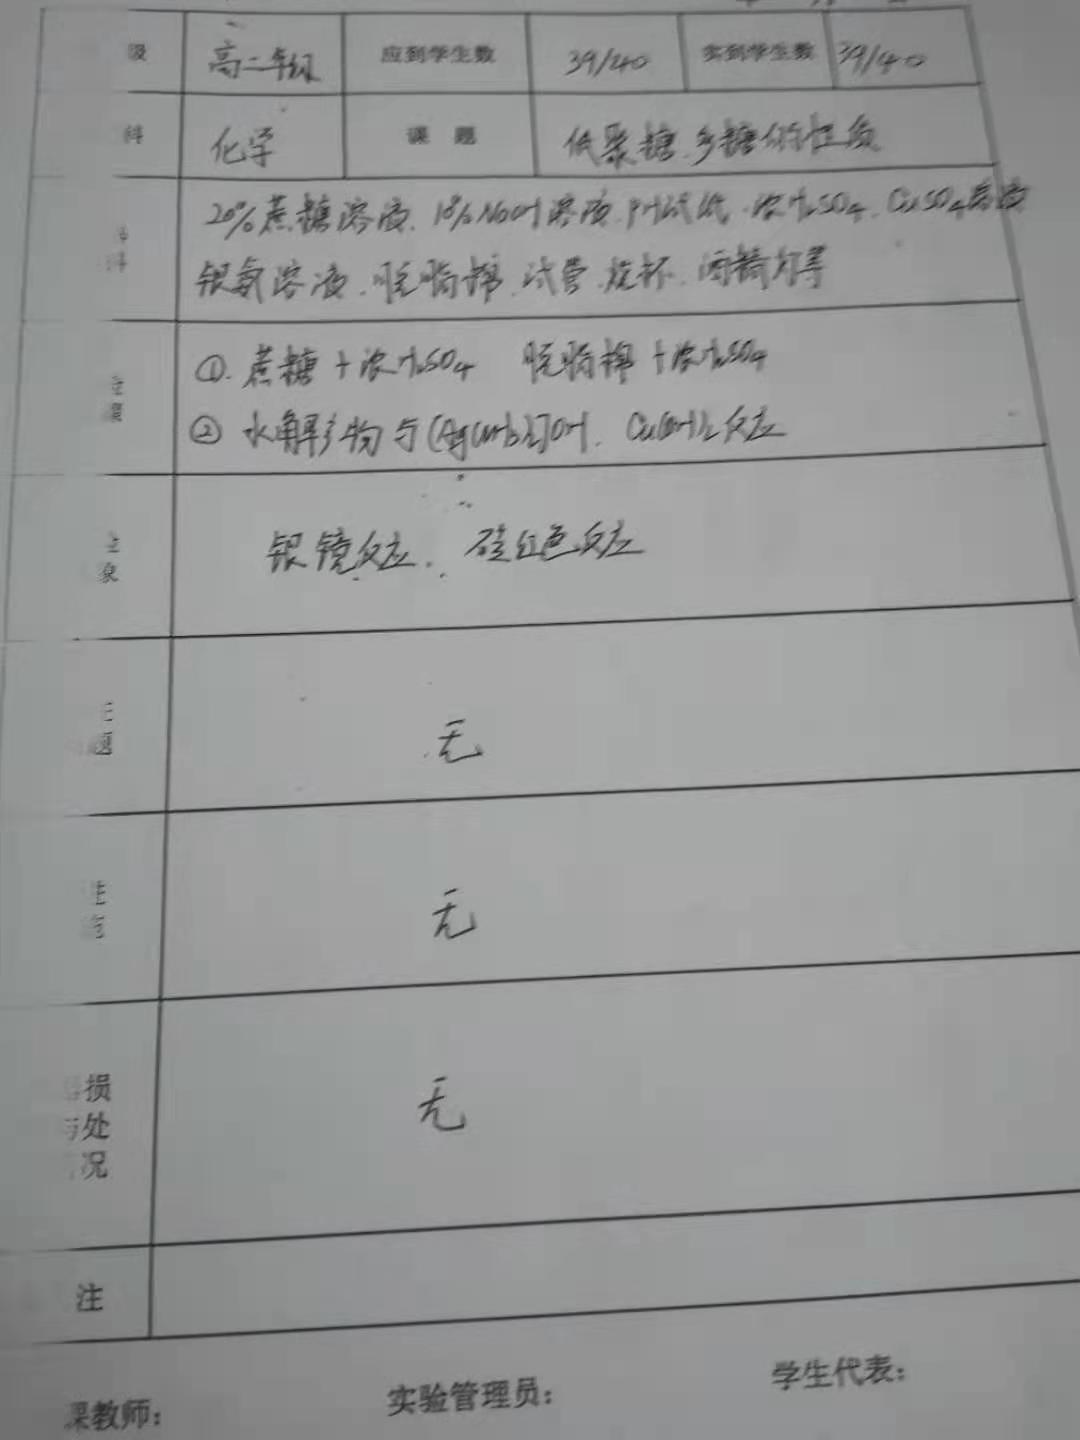 级 高二年级 应到学生数 39/40 实到学生数 39/40
科 化学 课 题 低聚糖、多糖的性质
20%蔗糖溶液、10%NaOH溶液、PH试纸、浓H₂SO₄、CuSO₄溶液
料 银氨溶液、脱脂棉、试管、烧杯、酒精灯等
①. 蔗糖+浓H₂SO₄ 脱脂棉+浓H₂SO₄
② 水解产物与[Ag(NH₃)₂]OH、Cu(OH)₂反应
象 银镜反应、砖红色反应
题 无
无
损 无
处
况
注
课教师:
实验管理员:
学生代表: